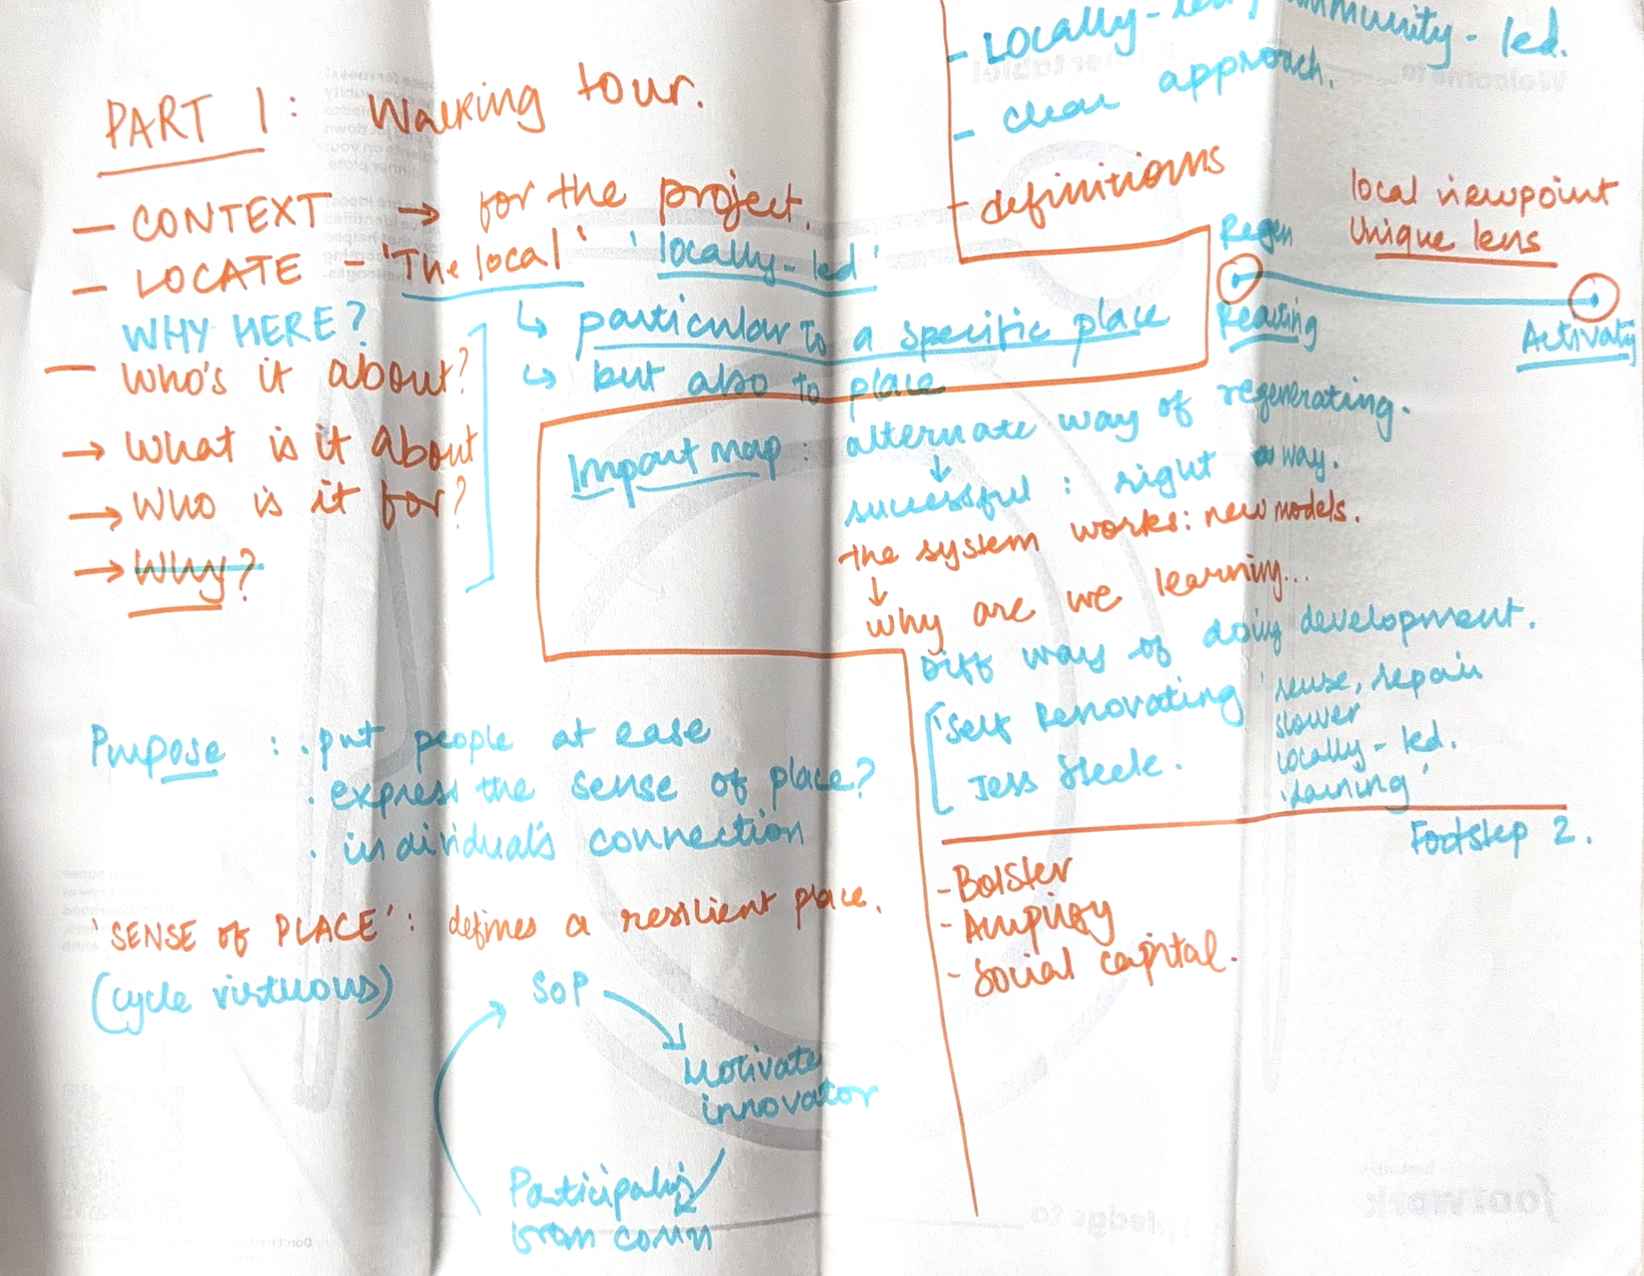 PART 1: Walking tour.
- CONTEXT → for the project.
- LOCATE - 'The local' 'locally-led'
WHY HERE?
↳ particular to a specific place
- Who's it about?
↳ but also to place
→ What is it about
→ Who is it for?
→ Why?
- Locally-led, community-led.
- clear approach.
- definitions
local viewpoint
Unique lens
Regen
Reacting
Activati
Impact map: alternate way of regenerating.
↓
successful: right way.
the system works: new models.
↓
why are we learning...
Diff ways of doing development.
'Self Renovating'
Jess Steele.
reuse, repair
slower
locally-led.
'learning'
Footstep 2.
- Bolster
- Amplify
- Social capital.
Purpose: . put people at ease
. express the sense of place?
. individual's connection
'SENSE of PLACE': defines a resilient place.
(cycle virtuous)
SoP
Motivate
innovator
Participatⁿ
from comm